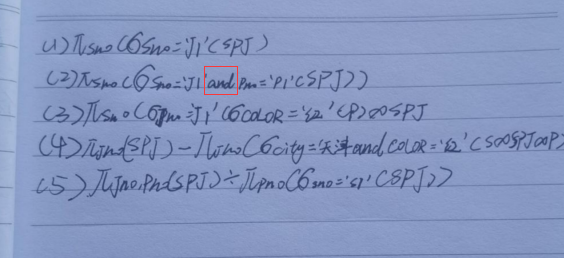 (1) πsno(6sno='J1'(SPJ)
(2) πsno(6sno='J1'and pno='P1'(SPJ))
(3) πsno(6pno='J1'(6COLOR='红'(P)∞SPJ
(4) πJno(SPJ) - πJno(6city='天津'and COLOR='红'(S∞SPJ∞P)
(5) πJno,Pno(SPJ)÷πpno(6sno='s1'(SPJ))